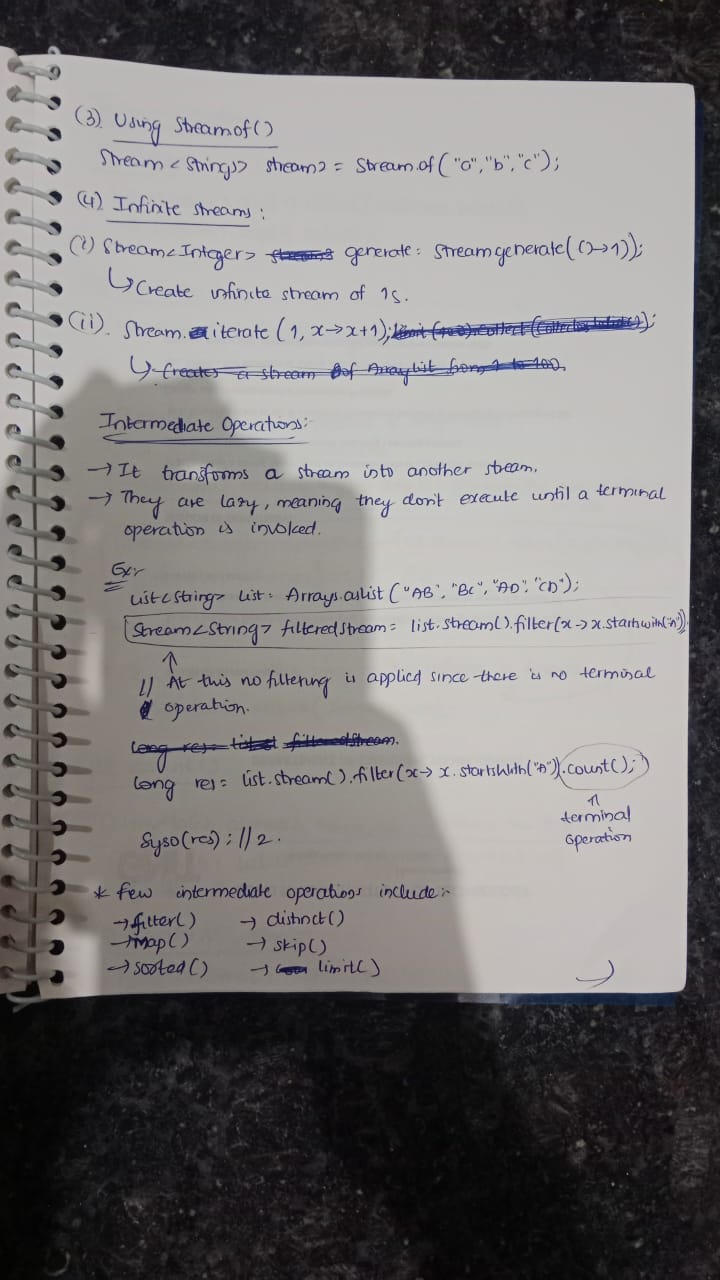 (3). Using Stream of ()
Stream < String>> stream2 = Stream.of ("a", "b", "c");
(4) Infinite streams :
(i) Stream<Integer> generate = Stream generate(()→1));
↳ Create infinite stream of 1s.
(ii). Stream. iterate (1, x→x+1); limit (100).collect (Collectors.toList());
↳ Creates a stream of Arraylist from 1 to 100.
Intermediate Operations:
→ It transforms a stream into another stream.
→ They are lazy, meaning they don't execute until a terminal
operation is invoked.
Ex:-
List<String> list = Arrays.aslist ("AB", "BC", "AD", "CD");
Stream<String> filteredStream = list.stream().filter(x→x.startswith("A"))
↑
// At this no filtering is applied since there is no terminal
operation.
Long res = list filteredStream.
Long res = list.stream().filter(x→ x.startsWith("A")).count();
↑
terminal
operation
Syso(res); // 2.
* Few intermediate operations include:-
→ filter() → distinct()
→ Map() → skip()
→ sorted() → limit()